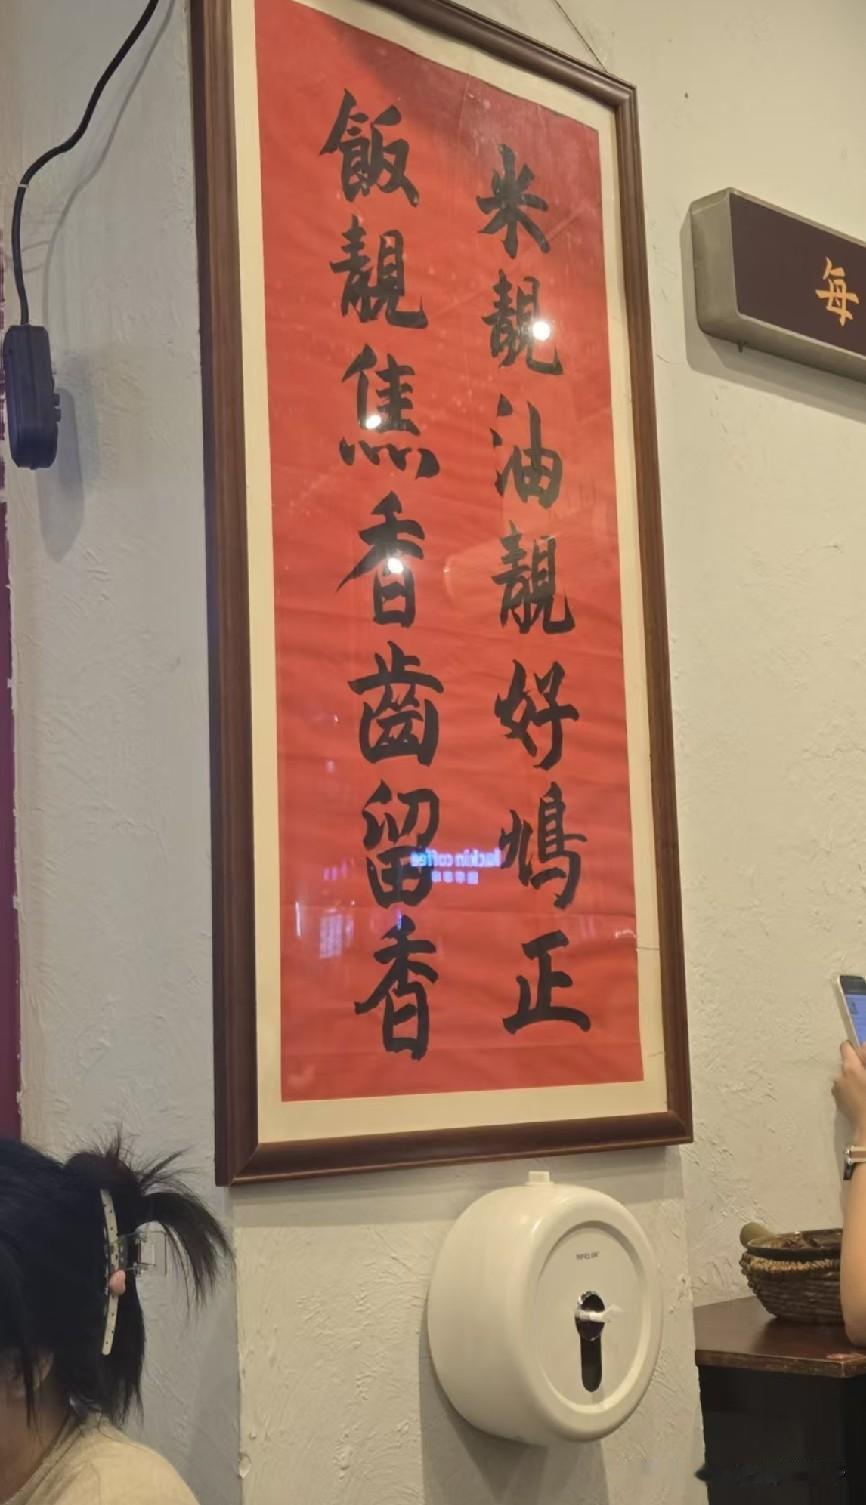 米靚油靚好鳩正
飯靚焦香齒留香
每
luckin coffee